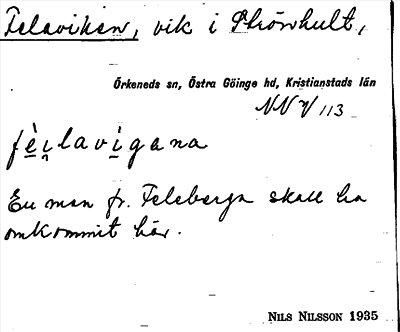 Felaviken, vik i Skönhult,
Örkeneds sn, Östra Göinge hd, Kristianstads län
NN V/113
fèi̯lavígana
En man fr. Feleberga skall ha
omkommit här.
NILS NILSSON 1935